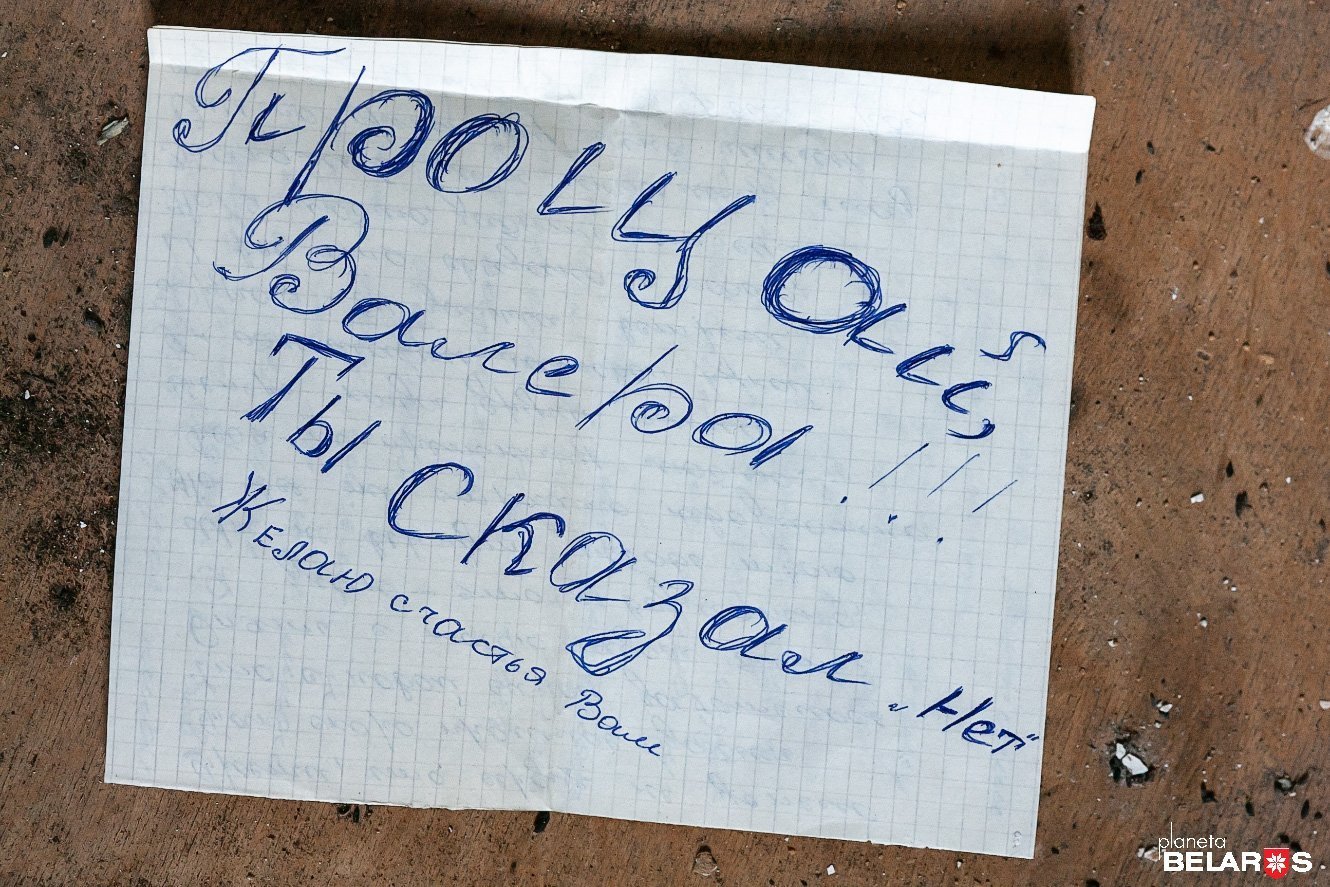 Прощай,
Валера!!!
Ты сказал „Нет"
Желаю счастья Вам
planeta
BELARUS